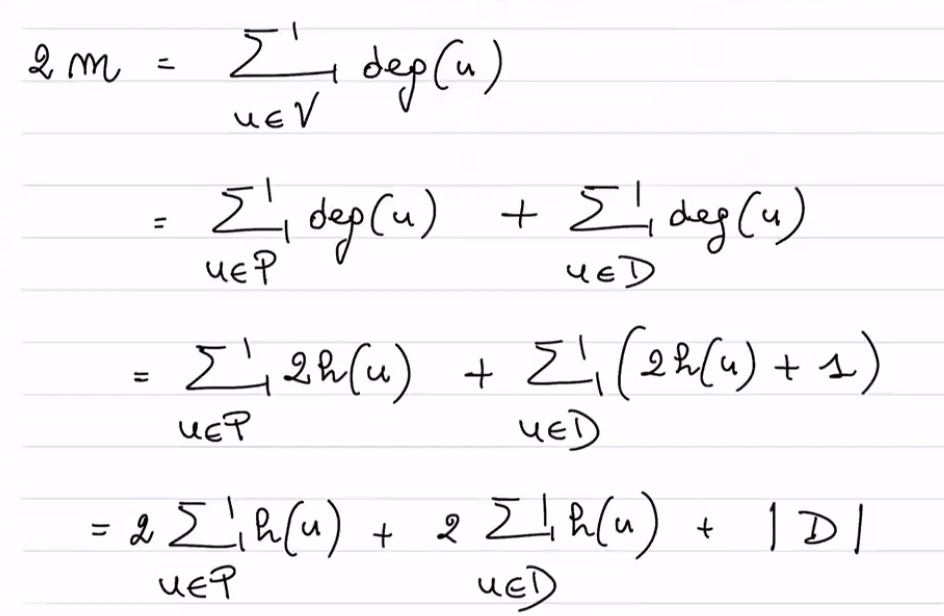 2m = ∑_{u∈V} deg(u)
= ∑_{u∈P} deg(u) + ∑_{u∈D} deg(u)
= ∑_{u∈P} 2h(u) + ∑_{u∈D} (2h(u) + 1)
= 2 ∑_{u∈P} h(u) + 2 ∑_{u∈D} h(u) + |D|